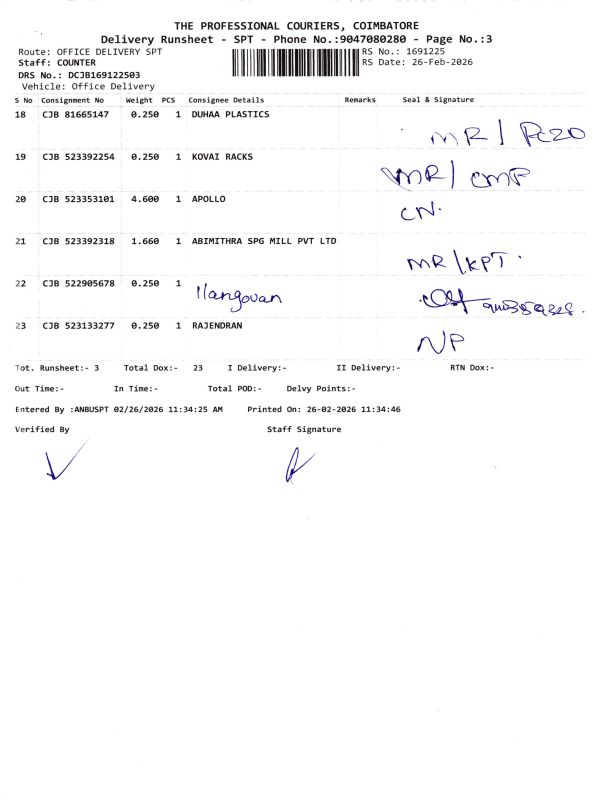 THE PROFESSIONAL COURIERS, COIMBATORE
Delivery Runsheet - SPT - Phone No.:9047080280 - Page No.:3
Route: OFFICE DELIVERY SPT RS No.: 1691225
Staff: COUNTER RS Date: 26-Feb-2026
DRS No.: DCJB169122503
Vehicle: Office Delivery
S No Consignment No Weight PCS Consignee Details Remarks Seal & Signature
18 CJB 81665147 0.250 1 DUHAA PLASTICS
MR |
19 CJB 523392254 0.250 1 KOVAI RACKS
MR | CMP
20 CJB 523353101 4.600 1 APOLLO
CN.
21 CJB 523392318 1.660 1 ABIMITHRA SPG MILL PVT LTD
MR \KPT.
22 CJB 522905678 0.250 1 Ilangovan
23 CJB 523133277 0.250 1 RAJENDRAN
NP
Tot. Runsheet:- 3 Total Dox:- 23 I Delivery:- II Delivery:- RTN Dox:-
Out Time:- In Time:- Total POD:- Delvy Points:-
Entered By :ANBUSPT 02/26/2026 11:34:25 AM Printed On: 26-02-2026 11:34:46
Verified By Staff Signature